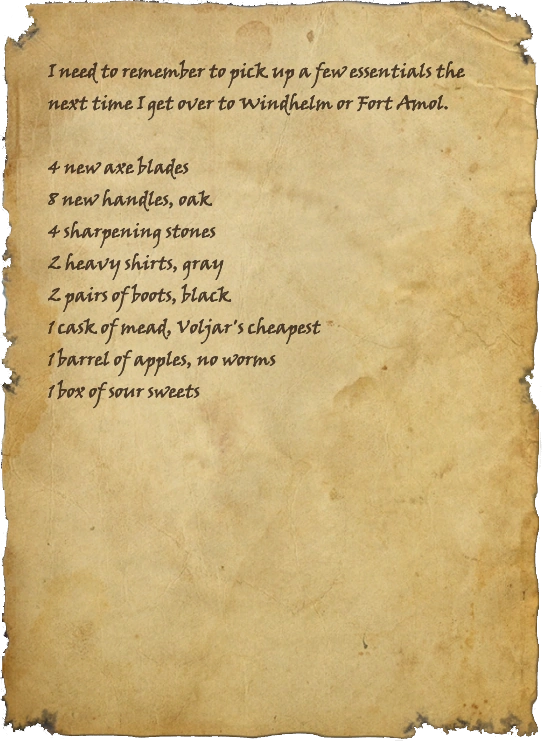 I need to remember to pick up a few essentials the
next time I get over to Windhelm or Fort Amol.
4 new axe blades
8 new handles, oak
4 sharpening stones
2 heavy shirts, gray
2 pairs of boots, black
1 cask of mead, Voljar's cheapest
1 barrel of apples, no worms
1 box of sour sweets